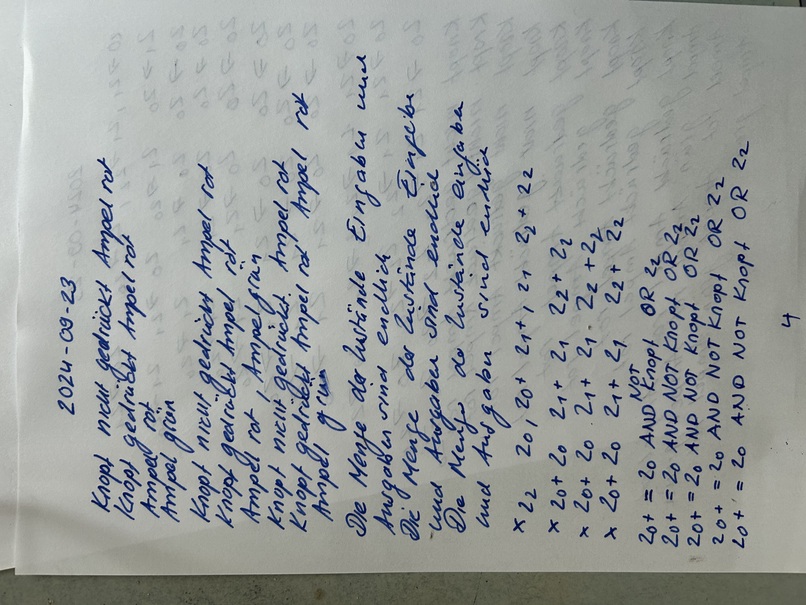 2024-09-23
Knopf nicht gedrückt Ampel rot
Knopf gedrückt Ampel rot
Ampel rot
Ampel grün
Knopf nicht gedrückt Ampel rot
Knopf gedrückt Ampel rot
Ampel rot, Ampel grün
Knopf nicht gedrückt Ampel rot
Knopf gedrückt Ampel rot Ampel rot
Ampel grün
Die Menge der Zustände Eingaben und
Ausgaben sind endlich
Die Menge der Zustände Eingabe
und Ausgaben sind endlich
Die Menge der Zustände eingaben
und Ausgaben sind endlich
x z2 z0, z0+ z1+, z1 z2+ z2
x z0+ z0 z1+ z1 z2+ z2
x z0+ z0 z1+ z1 z2 +z2
x z0+ z0 z1+ z1 z2+ z2
z0+ = z0 AND NOT Knopf OR z2
z0+ = z0 AND NOT Knopf OR z2
z0+ = z0 AND NOT Knopf OR z2
z0+ = z0 AND NOT Knopf OR z2
z0+ = z0 AND NOT Knopf OR z2
4